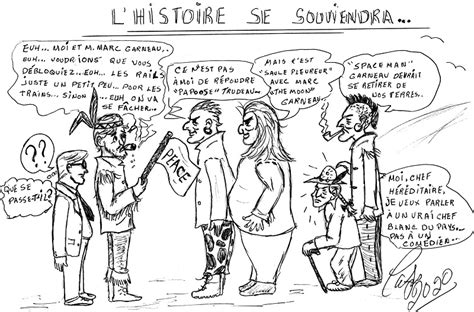 L'HISTOIRE SE SOUVIENDRA...
EUH... MOI ET M. MARC GARNEAU..
EUH.. VOUDRIONS QUE VOUS
DÉBLOQUIEZ...EUH.. LES RAILS
JUSTE UN PETIT PEU.. POUR LES
TRAINS.. SINON ....EUH, ON VA
SE FACHER...
CE N'EST PAS
À MOI DE RÉPONDRE
"PAPOOSE" TRUDEAU...
MAIS C'EST
"SAULE PLEUREUR"
AVEC MARC
"THE MOON"
GARNEAU
"SPACE MAN"
GARNEAU DEVRAIT
SE RETIRER DE
NOS TERRES..
??
QUE SE
PASSE-T-IL?
PEACE
MOI, CHEF
HÉRÉDITAIRE,
JE VEUX PARLER
À UN VRAI CHEF
BLANC DU PAYS..
PAS À UN
COMÉDIEN..
2020